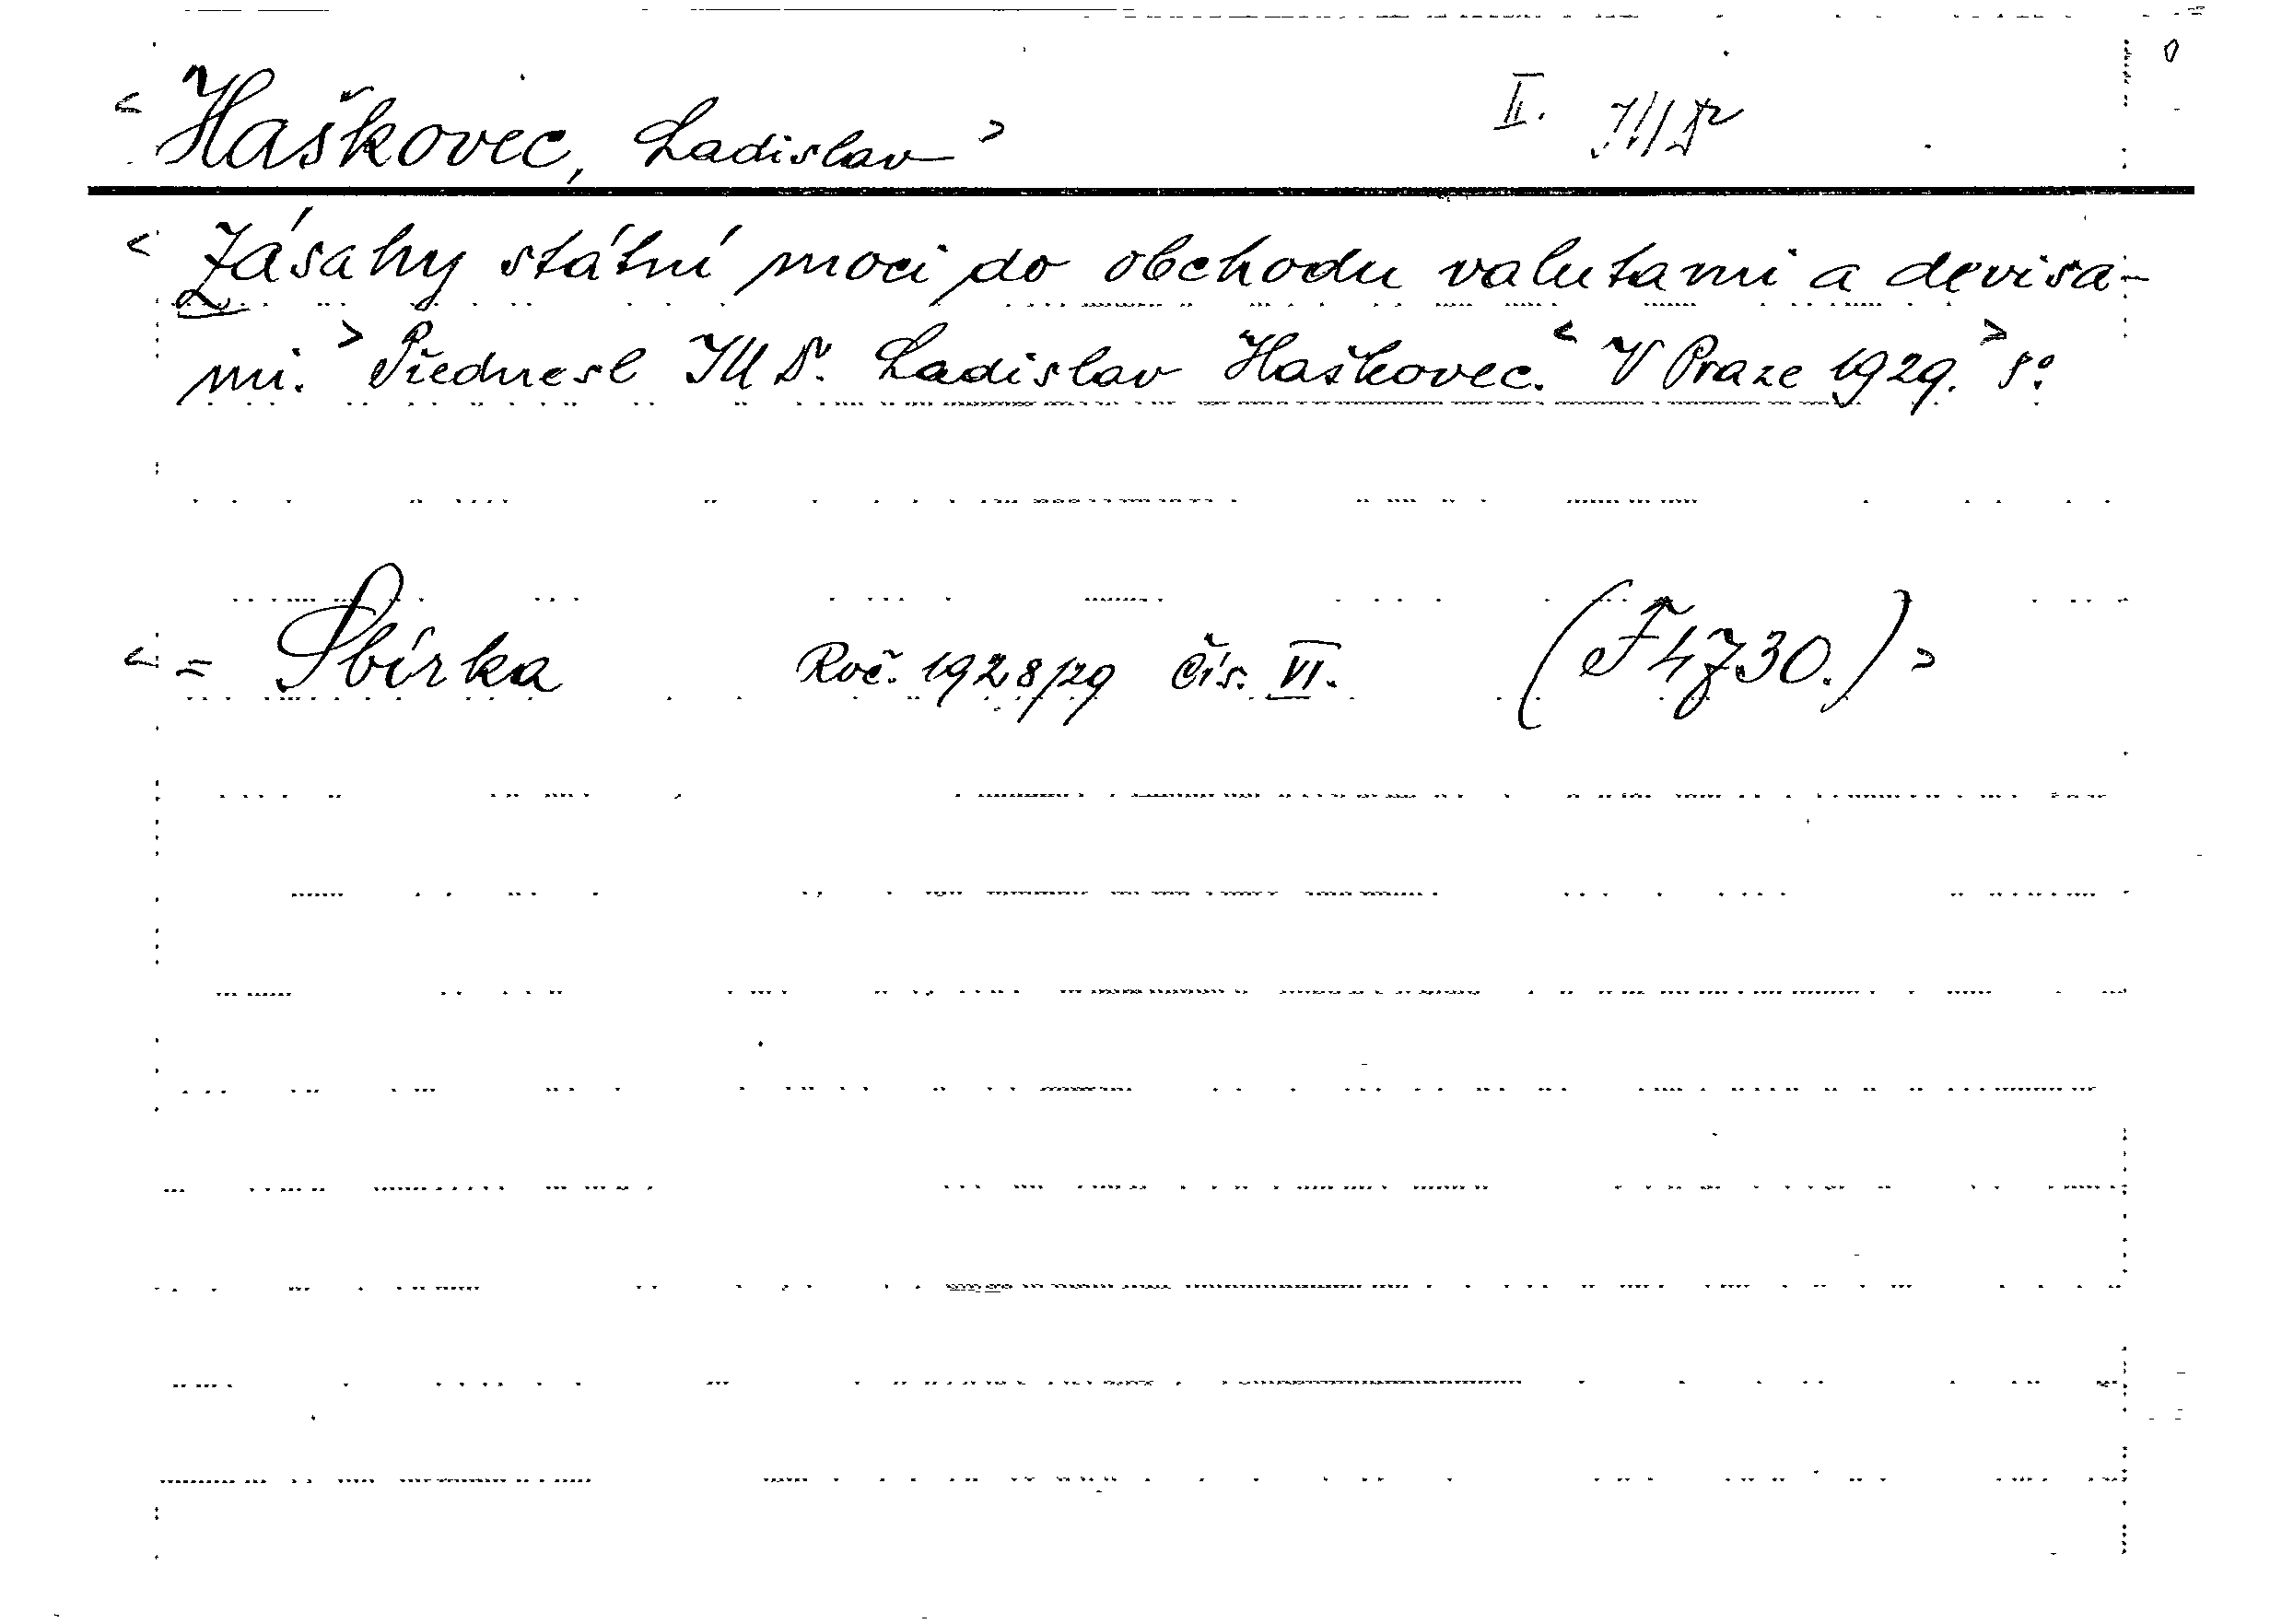 < Haškovec, Ladislav > II. JUDr
< Zásahy státní moci do obchodu valutami a devisa-
mi. > Přednesl JUDr. Ladislav Haškovec. < V Praze 1929. > 8°.
< = Sbírka Roč. 1928/29 Čís. VI. (F 4730.) >